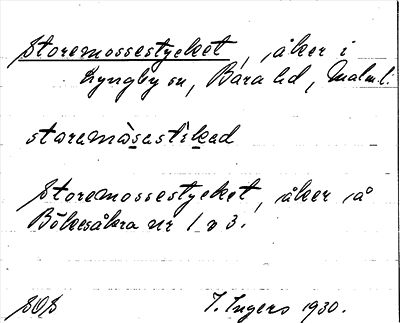 Storemossestycket, åker i
Lyngby sn, Bara hd, Malm.l.
storemåsastikad
Storemossestycket, åker å
Bökesåkra nr 1 o 3.
SOS
I. Ingers 1930.